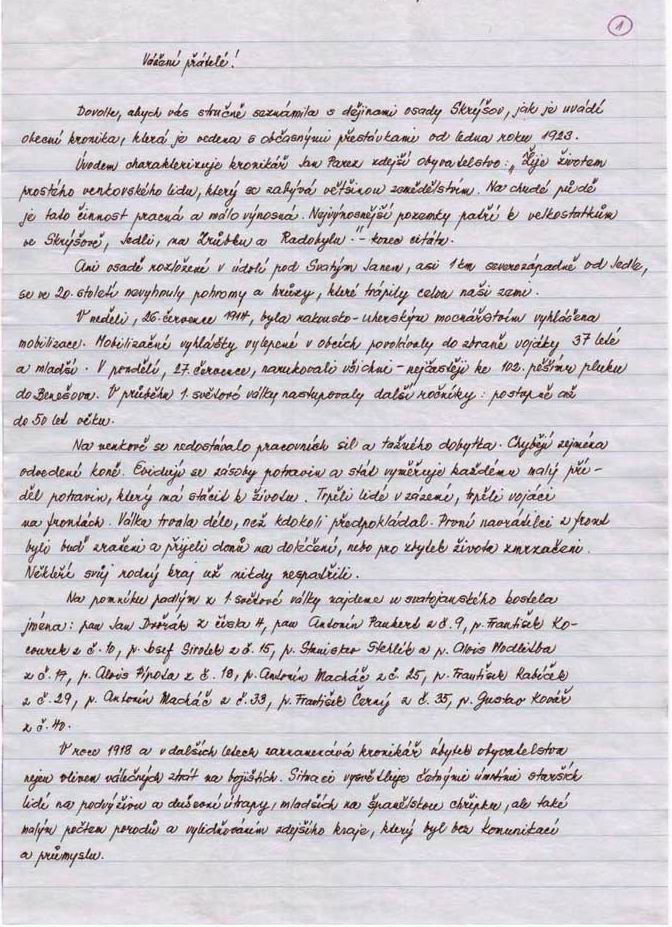 1
Vážení přátelé!
Dovolte, abych vás stručně seznámila s dějinami osady Skrýšov, jak je uvádí
obecní kronika, která je vedena s občasnými přestávkami od ledna roku 1923.
Úvodem charakterizuje kronikář Jan Parez zdejší obyvatelstvo: „Žije životem
prostého venkovského lidu, který se zabývá většinou zemědělstvím. Na chudé půdě
je tato činnost pracná a málo výnosná. Nejvýnosnější pozemky patří k velkostatkům
ve Skrýšově, Jedli, na Zrůbku a Radobylu." - konec citátu.
Ani osadě rozložené v údolí pod Svatým Janem, asi 1 km severozápadně od Jedle,
se ve 20. století nevyhnuly pohromy a hrůzy, které trápily celou naši zemi.
V neděli, 26. července 1914, byla rakousko-uherským mocnářstvím vyhlášena
mobilizace. Mobilizační vyhlášky vylepené v obcích povolávaly do zbraně vojáky 37 leté
a mladší. V pondělí, 27. července, narukovali všichni - nejčastěji ke 102. pěšímu pluku
do Benešova. V průběhu 1. světové války nastupovaly další ročníky: postupně až
do 50 let věku.
Na venkově se nedostávalo pracovních sil a tažného dobytka. Chybějí zejména
odvedení koně. Evidují se zásoby potravin a stát vyměřuje každému malý pří-
děl potravin, který má stačit k životu. Trpěli lidé v zázemí, trpěli vojáci
na frontách. Válka trvala déle, než kdokoli předpokládal. První navrátilci z front
byli buď zraněni a přijeli domů na doléčení, nebo pro zbytek života zmrzačeni.
Někteří svůj rodný kraj už nikdy nespatřili.
Na pomníku padlým z 1. světové války najdeme u svatojanského kostela
jména: pan Jan Dvořák z čísla 4, pan Antonín Paukert z č. 9, p. František Ko-
courek z č. 10, p. Josef Sirotek z č. 15, p. Stanislav Stehlík a p. Alois Modlitba
z č. 17, p. Alois Pípota z č. 18, p. Antonín Macháč z č. 25, p. František Kabíček
z č. 29, p. Antonín Macháč z č. 33, p. František Černý z č. 35, p. Gustav Kovář
z č. 40.
V roce 1918 a v dalších letech zaznamenává kronikář úbytek obyvatelstva
nejen vlivem válečných ztrát na bojištích. Situaci vysvětluje četnými úmrtími starších
lidí na podvýživu a duševní útrapy, mladších na španělskou chřipku, ale také
malým počtem porodů a vylidňováním zdejšího kraje, který byl bez komunikací
a průmyslu.